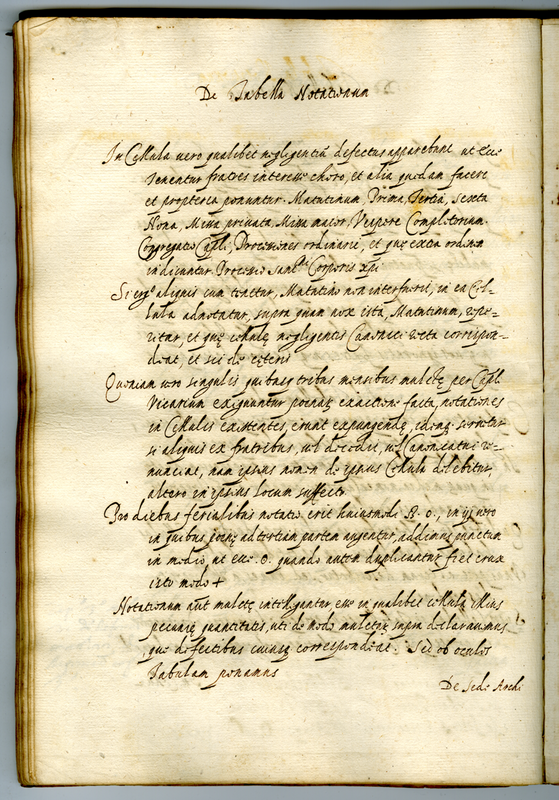 De Tabella Notationum
In Cellula vero qualibet negligentiũ defectus apparebunt ut
Tenentur fratres interesse choro, et alia quędam facere
et propterea ponuntur. Matutinum, Prima, Tertia, Sexta
Nona, Missa privata, Missa maior, Vespere Completorium.
Congregatio Capli, Processiones ordinarię, et quę extra ordinẽ
indicuntur. Processio Corporis xpi
Si ergo aliquis cum tenetur, Matutino non interfuerit, in ea Cel-
lula adnotatur, supra quam vox ista, Matutinum, repe-
ritur, et quę cellulę negligentis Canonici recta correspon-
deat, et sic de cęteris
Quoniam vero singulis quibusq tribus mensibus mulctę per Capl
Vicarium exiguntur poenaq exactione facta, notationes
in Cellulis existentes, erunt expungendę, idemq servetur
si aliquis ex fratribus, vel decedit, vel Canonicatui re-
nunciat, nam ipsius nomen de ipsius Cellula delebitur,
altero in ipsius locum suffecto
Pro diebus ferialibus notatio erit huiusmodi o., in ijs vero
in quibus poenę ad tertiam partem augentur, addimus punctum
in medio, ut quando autem duplicantur fiet crux
isto modo +
Notationum aũt mulctę intelligantur, esse in qualibet cellula illius
pecunię quantitatis, uti de modo mulctarum supra declaravimus,
quę defectibus cuiusq correspondeat. Sed ob oculos
Tabulam ponamus
De Sede Archi